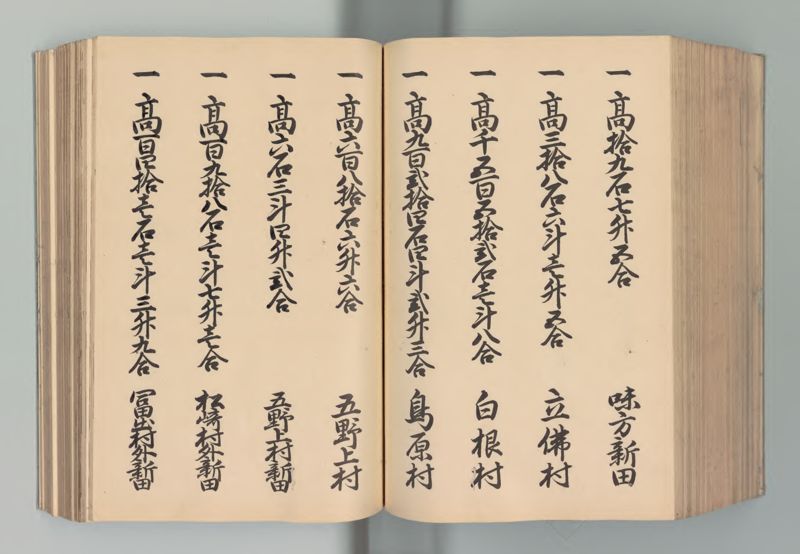 一 高拾九石七升五合 味方新田
一 高三拾八石六斗壱升五合 立佛村
一 高千五百五拾弐石壱斗八合 白根村
一 高九百弐拾四石四斗弐升三合 鳥原村
一 高六百八拾石六升六合 五野上村
一 高六石三斗四升弐合 五野上村新田
一 高百九拾八石壱斗七升壱合 松崎村外新田
一 高百四拾壱石壱斗三升九合 冨岀村外新田